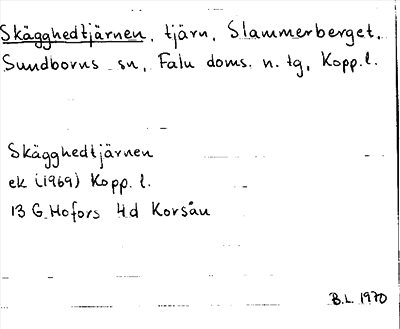 Skägghedtjärnen, tjärn, Slammerberget,
Sundborns sn, Falu doms. n. tg, Kopp. l.
Skägghedtjärnen
ek (1969) Kopp. l.
13 G Hofors 4d Korsån
B.L. 1970